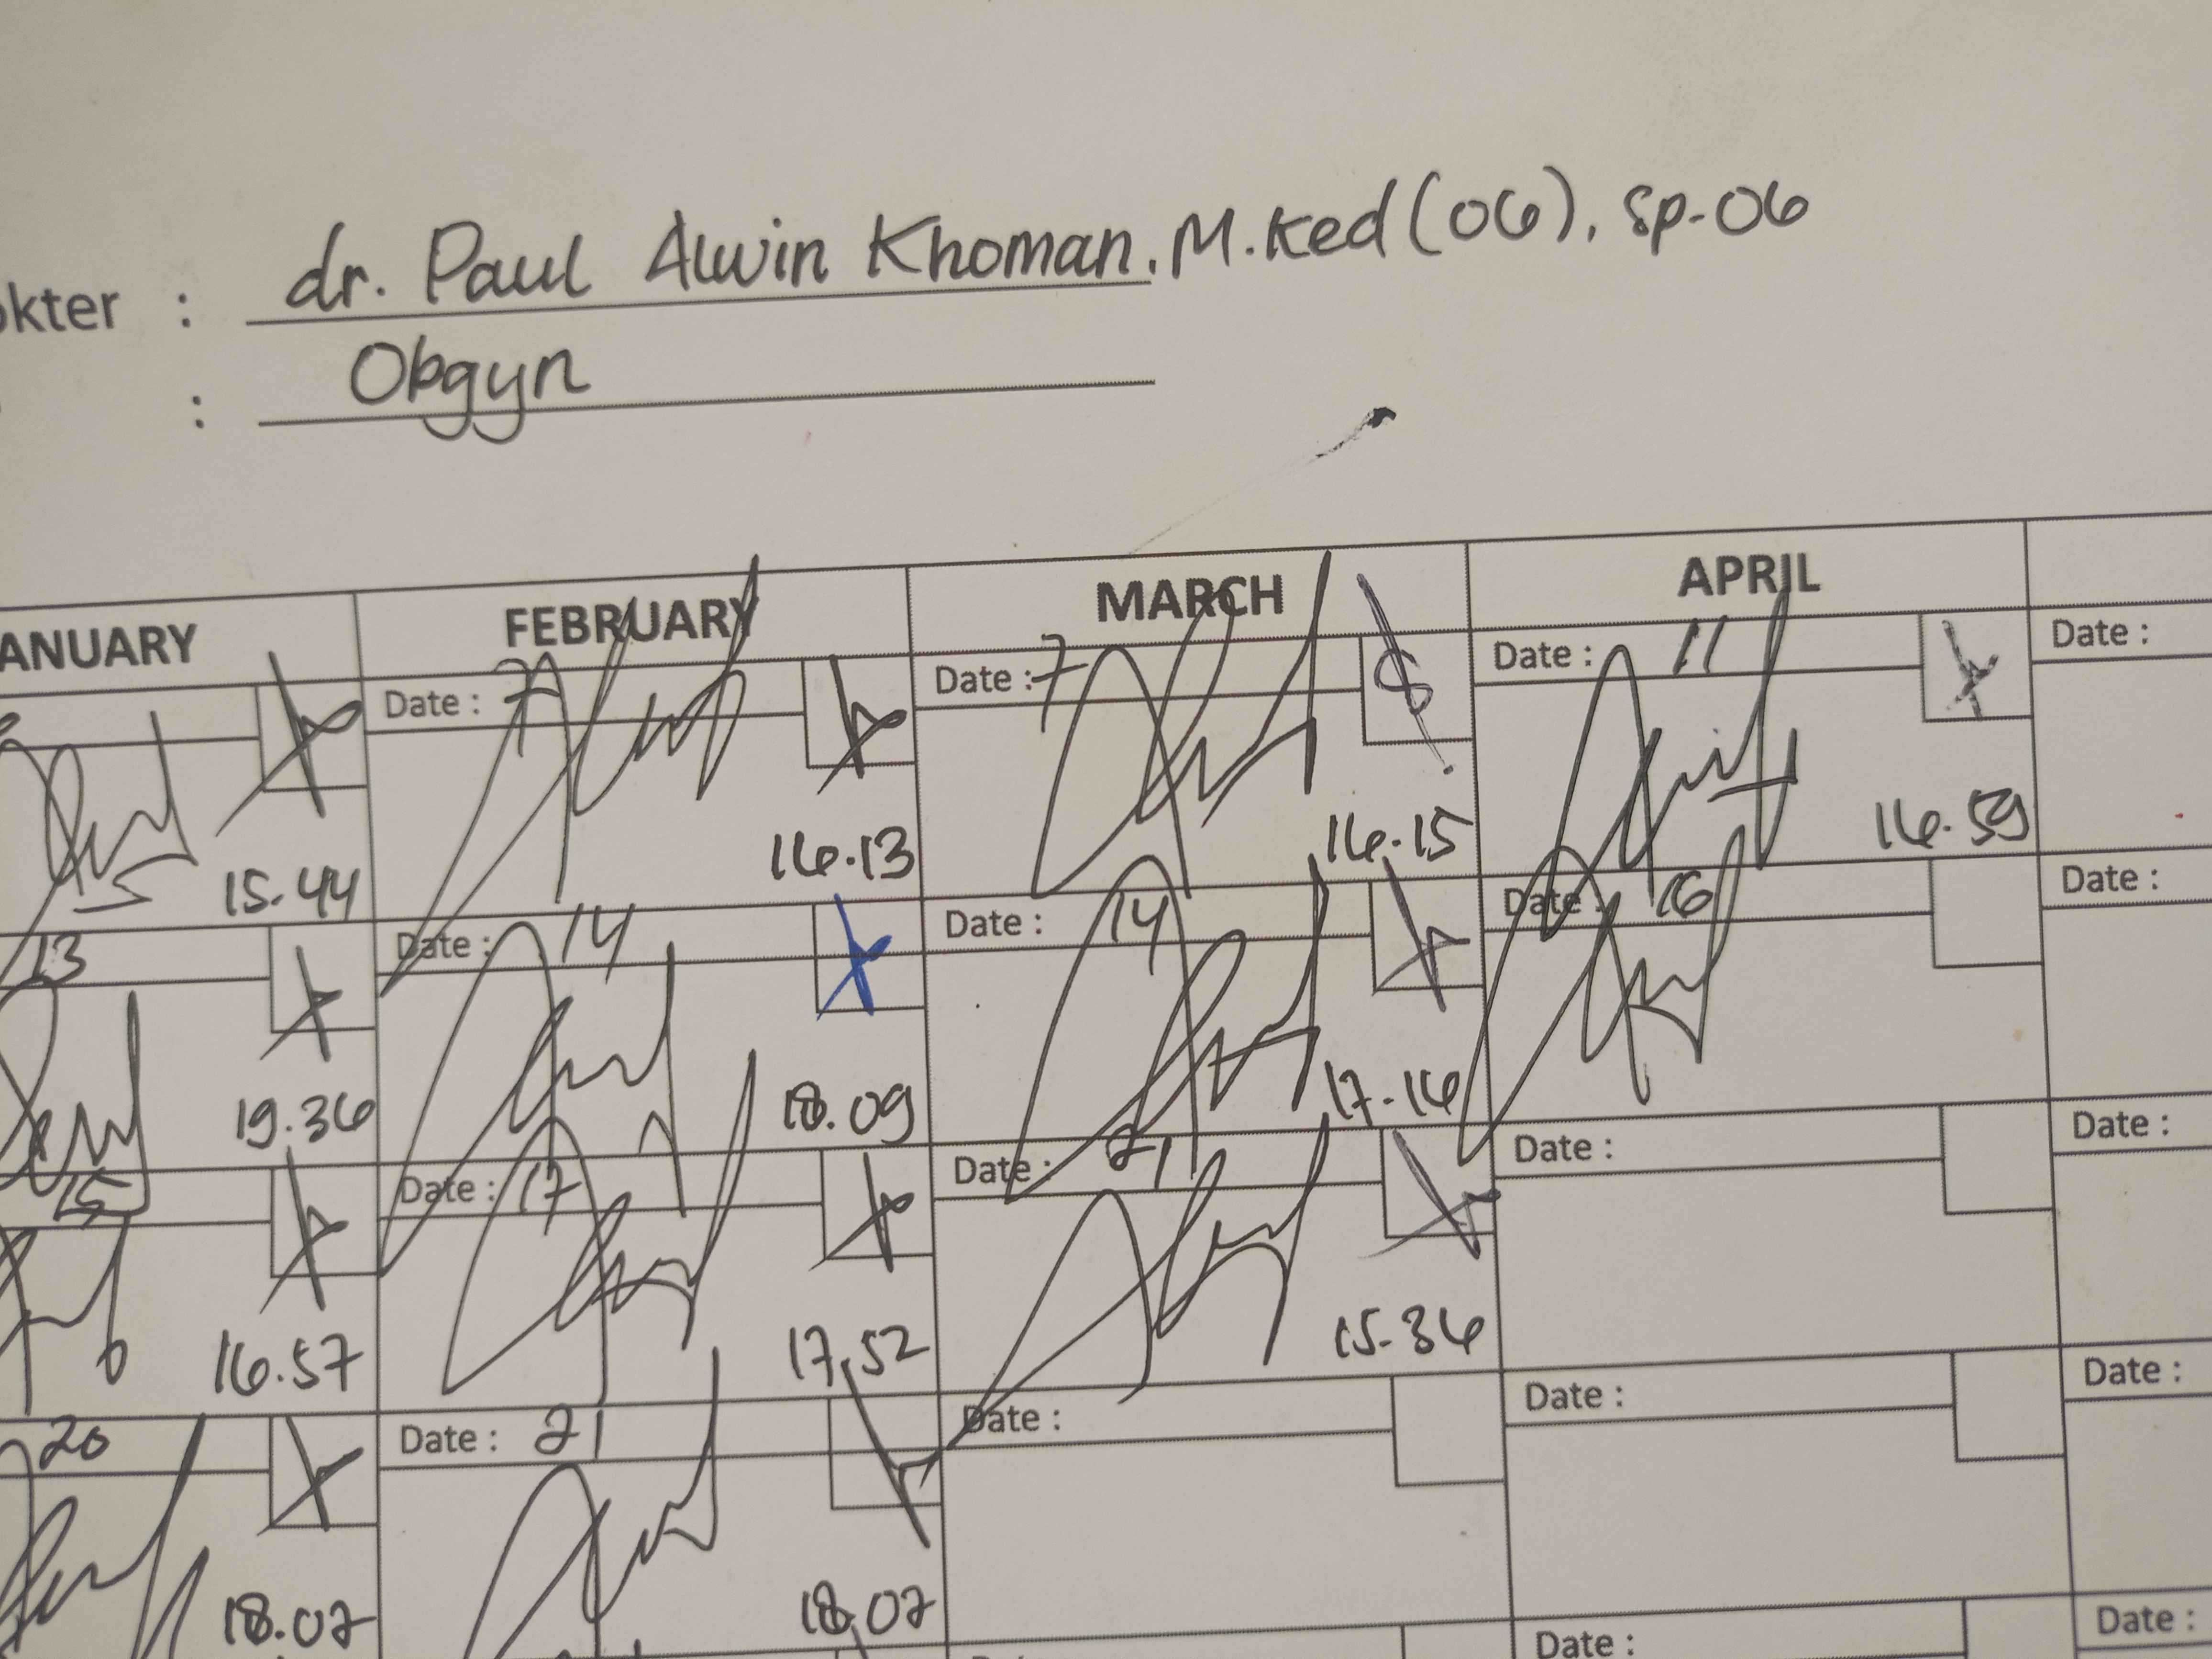 okter : dr. Paul Alwin Khoman. M.Ked (OG), Sp-OG
: Obgyn
ANUARY FEBRUARY MARCH APRIL
Date : 7 Date : 7 Date : 11 Date :
15.44 16.13 16.15 16.59
13 Date : 14 Date : 14 Date : 16 Date :
19.36 18.09 17.16
15 Date : 17 Date : 21 Date : Date :
16.57 17.52 15.36
20 Date : 21 Date : Date : Date :
18.07 18.07
Date : Date :